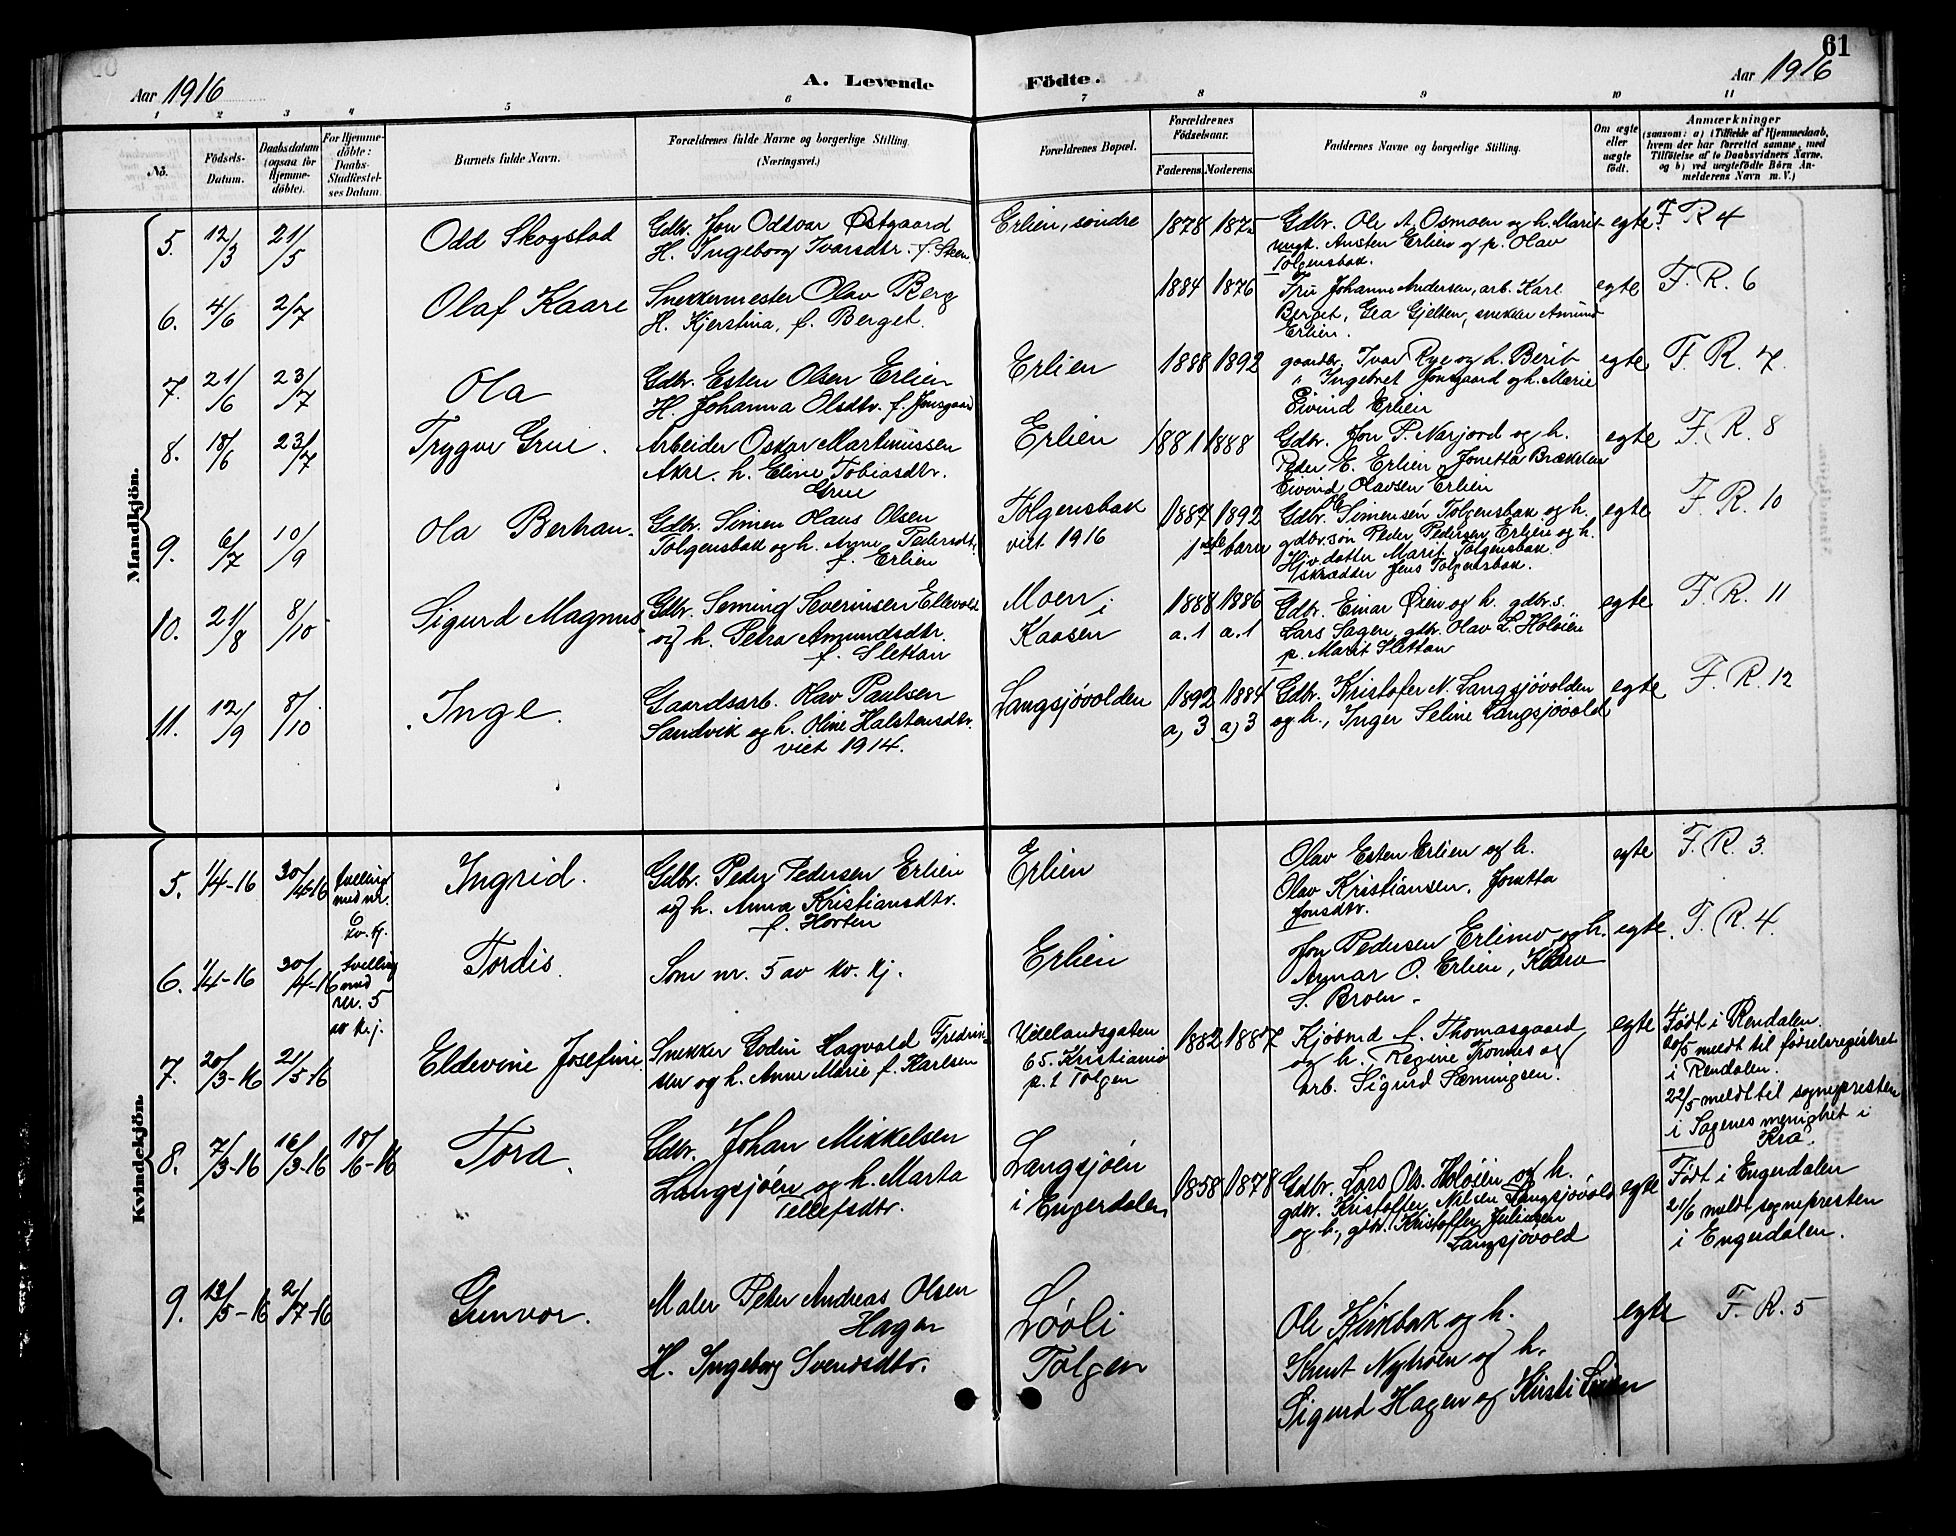 61
Aar 1916
A. Levende Födte.
Aar 1916
1 2 3 4 5 6 7 8 9 10 11
No.
Födsels-
Datum.
Daabsdatum
(ogsaa for
Hjemme-
döbte).
For Hjemme-
döbte:
Daabs-
Stadfæstel-
ses Datum.
Barnets fulde Navn.
Forældrenes fulde Navne og borgerlige Stilling
(Næringsvei.)
Forældrenes Bopæl.
Forældrenes
Födselsaar.
Faderens. Moderens.
Faddernes Navne og borgerlige Stilling.
Om ægte
eller
uægte
födt.
Anmærkninger
(saasom: a) i Tilfælde af Hjemmedaab,
hvem der har forrettet samme, med
Tilföielse af to Daabsvidners Navne,
og b) ved uægtefödte Börn An-
melderens Navn m. V.)
Mandkjön.
5. 12/3 21/5 Odd Skogstad
Gdbr. Jon Oddvar Østgaard
H. Ingeborg Ivarsdtr. f. Steen
Erlien, søndre
1878 1875
Gdbr. Ole A. Osmoen og h. Marit
ungk. Austen Erlien og p. Olav
Tolgensbak.
egte F. R. 4
6. 4/6 2/7 Olaf Kaare
Snekkermester Olav Berg
H. Kjerstina, f. Berget.
1884 1876
Fru Johanne Andersen, arb. Karl
Berget, Gea Gjelten, snekker Amund
Erlien.
egte F. R. 6
7. 21/6 23/7 Ola
Gdbr. Esten Olsen Erlien
H. Johanna Olsdtr. f. Jonsgaard
Erlien
1888 1892
gaardbr. Ivar Rye og h. Berit
" Ingebret Jonsgaard og h. Marie
Eivind Erlien
egte F. R. 7.
8. 18/6 23/7 Trygve Grue.
Arbeider Oskar Martinussen
Akre. h. Eline Tobiasdtr.
Grue
Erlien
1881 1888
Gdbr. Jon P. Narjord og h.
Peder E. Erlien, Jonetta Brækken
Eivind Olavsen Erlien
egte F. R. 8
9. 6/7 10/9 Ola Berhan.
Gdbr. Simen Olaus Olsen
Tolgensbak og h. Anne Pedersdtr.
f. Erlien
Tolgensbak
viet 1916
1887 1892
1ste barn
Gdbr. Ole Simensen Tolgensbak og h.
gdbr.søn Peder Pedersen Erlien og h.
Hjv. datter Marit Tolgensbak.
skrædder Jens Tolgensbak.
egte F. R. 10
10. 21/8 8/10 Sigurd Magnus
Gdbr. Seming Severinsen Ellevold
og h. Petra Amundsdtr.
f. Slettan
Moen i
Kaasen
1888 1886
a. 1 a. 1
Gdbr. Einar Øien og h. gdbr.s.
Lars Sagen, gdbr. Olav L. Holøien
p. Marit Slettan
egte F. R. 11
11. 12/9 8/10 Inge.
Gaardsarb. Olav Paulsen
Sandvik og h. Oline Halstensdtr.
viet 1914.
Langsjøvolden
1892 1884
a) 3 a) 3
Gdbr. Kristofer N. Langsjøvolden
og h., Inger Seline Langsjøvold
egte F. R. 12
Kvindekjön.
5. 1/4-16 30/4-16 tvelling
med nr.
6
kv. kj.
Ingrid.
Gdbr. Peder Pedersen Erlien
og h. Anna Kristiansdtr.
f. Horten
Erlien
Olav Esten Erlien og h.
Olav Kristiansen, Jonetta
Jonsdtr.
egte F. R. 3.
6. 1/4-16 30/4-16 tvelling
med
nr. 5
av k.j.
Tordis.
Som nr. 5 av kv. kj.
Erlien
Jon Pedersen Erlimo og h.
Annar O. Erlien, Kara
S. Broen.
egte F. R. 4.
7. 20/3-16 21/5-16 Eldevine Josefine
Snekker Godin Hagvald Fredrik-
sen og h. Anne Marie f. Karlsen
Uelandsgaten
65. Kristiania
p. t Tolgen
1882 1887
Kjøbmd f. Thomasgaard
og h. Regine Trondes og
arb. Sigurd Sæmingsen.
egte
Født i Rendalen.
20/5 meldt til fødselsregistret
i Rendalen.
22/5 meldt til sognepresten
i Sagenes menighet i
Kra.
8. 7/3-16 16/3-16 18/6-16 Tora.
Gdbr. Johan Mikkelsen
Langsjøen og h. Marta
Tellefsdtr.
Langsjøen
i Engerdalen
1858 1878
Gdbr. Lars Ols. Holøien og h.
gdbr. Kristoffer Nilsen Langsjøvold
og h., gdbr. Kristoffer Juliusen
Langsjøvold
egte
Født i Engerdalen
21/6 meldt sognepresten
i Engerdalen.
9. 12/5-16 2/7-16 Gunvor.
Maler Peter Andreas Olsen
Hagen
H. Ingeborg Svendsdtr.
Lóoli
Tolgen
Ole Kirkbak og h.
Knut Nytrøen og h.
Sigurd Hagen og Kirsti
egte F. R. 5